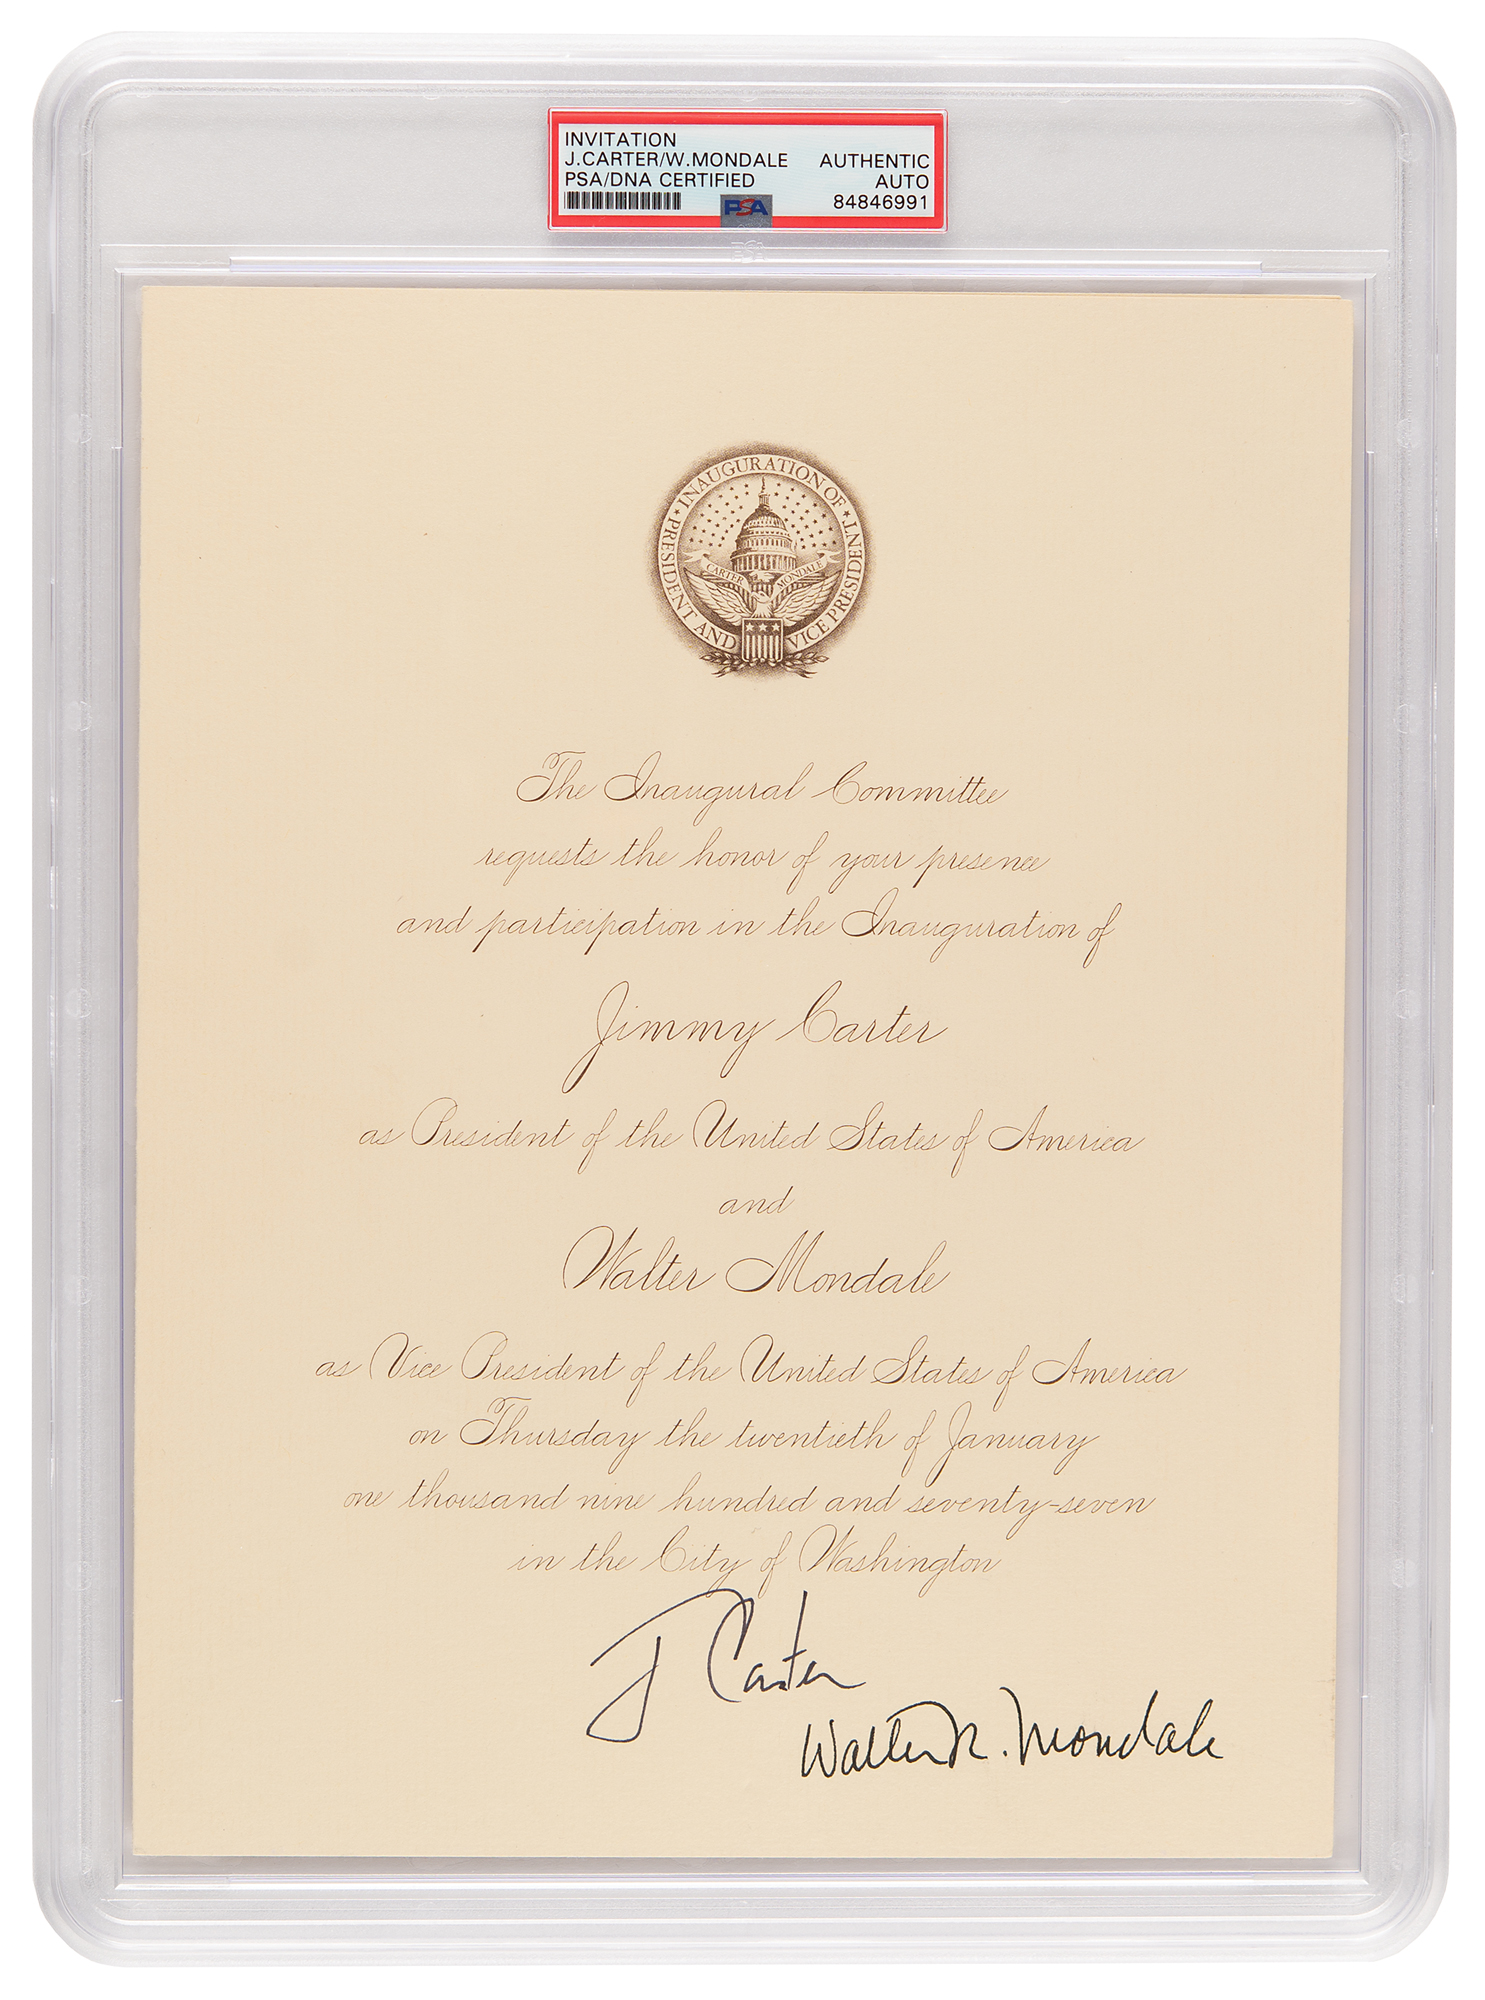 INVITATION
J.CARTER/W.MONDALE AUTHENTIC
PSA/DNA CERTIFIED AUTO
84846991
PSA
PSA
INAUGURATION OF
PRESIDENT AND VICE PRESIDENT
CARTER MONDALE
The Inaugural Committee
requests the honor of your presence
and participation in the Inauguration of
Jimmy Carter
as President of the United States of America
and
Walter Mondale
as Vice President of the United States of America
on Thursday the twentieth of January
one thousand nine hundred and seventy-seven
in the City of Washington
J Carter
Walter F. Mondale